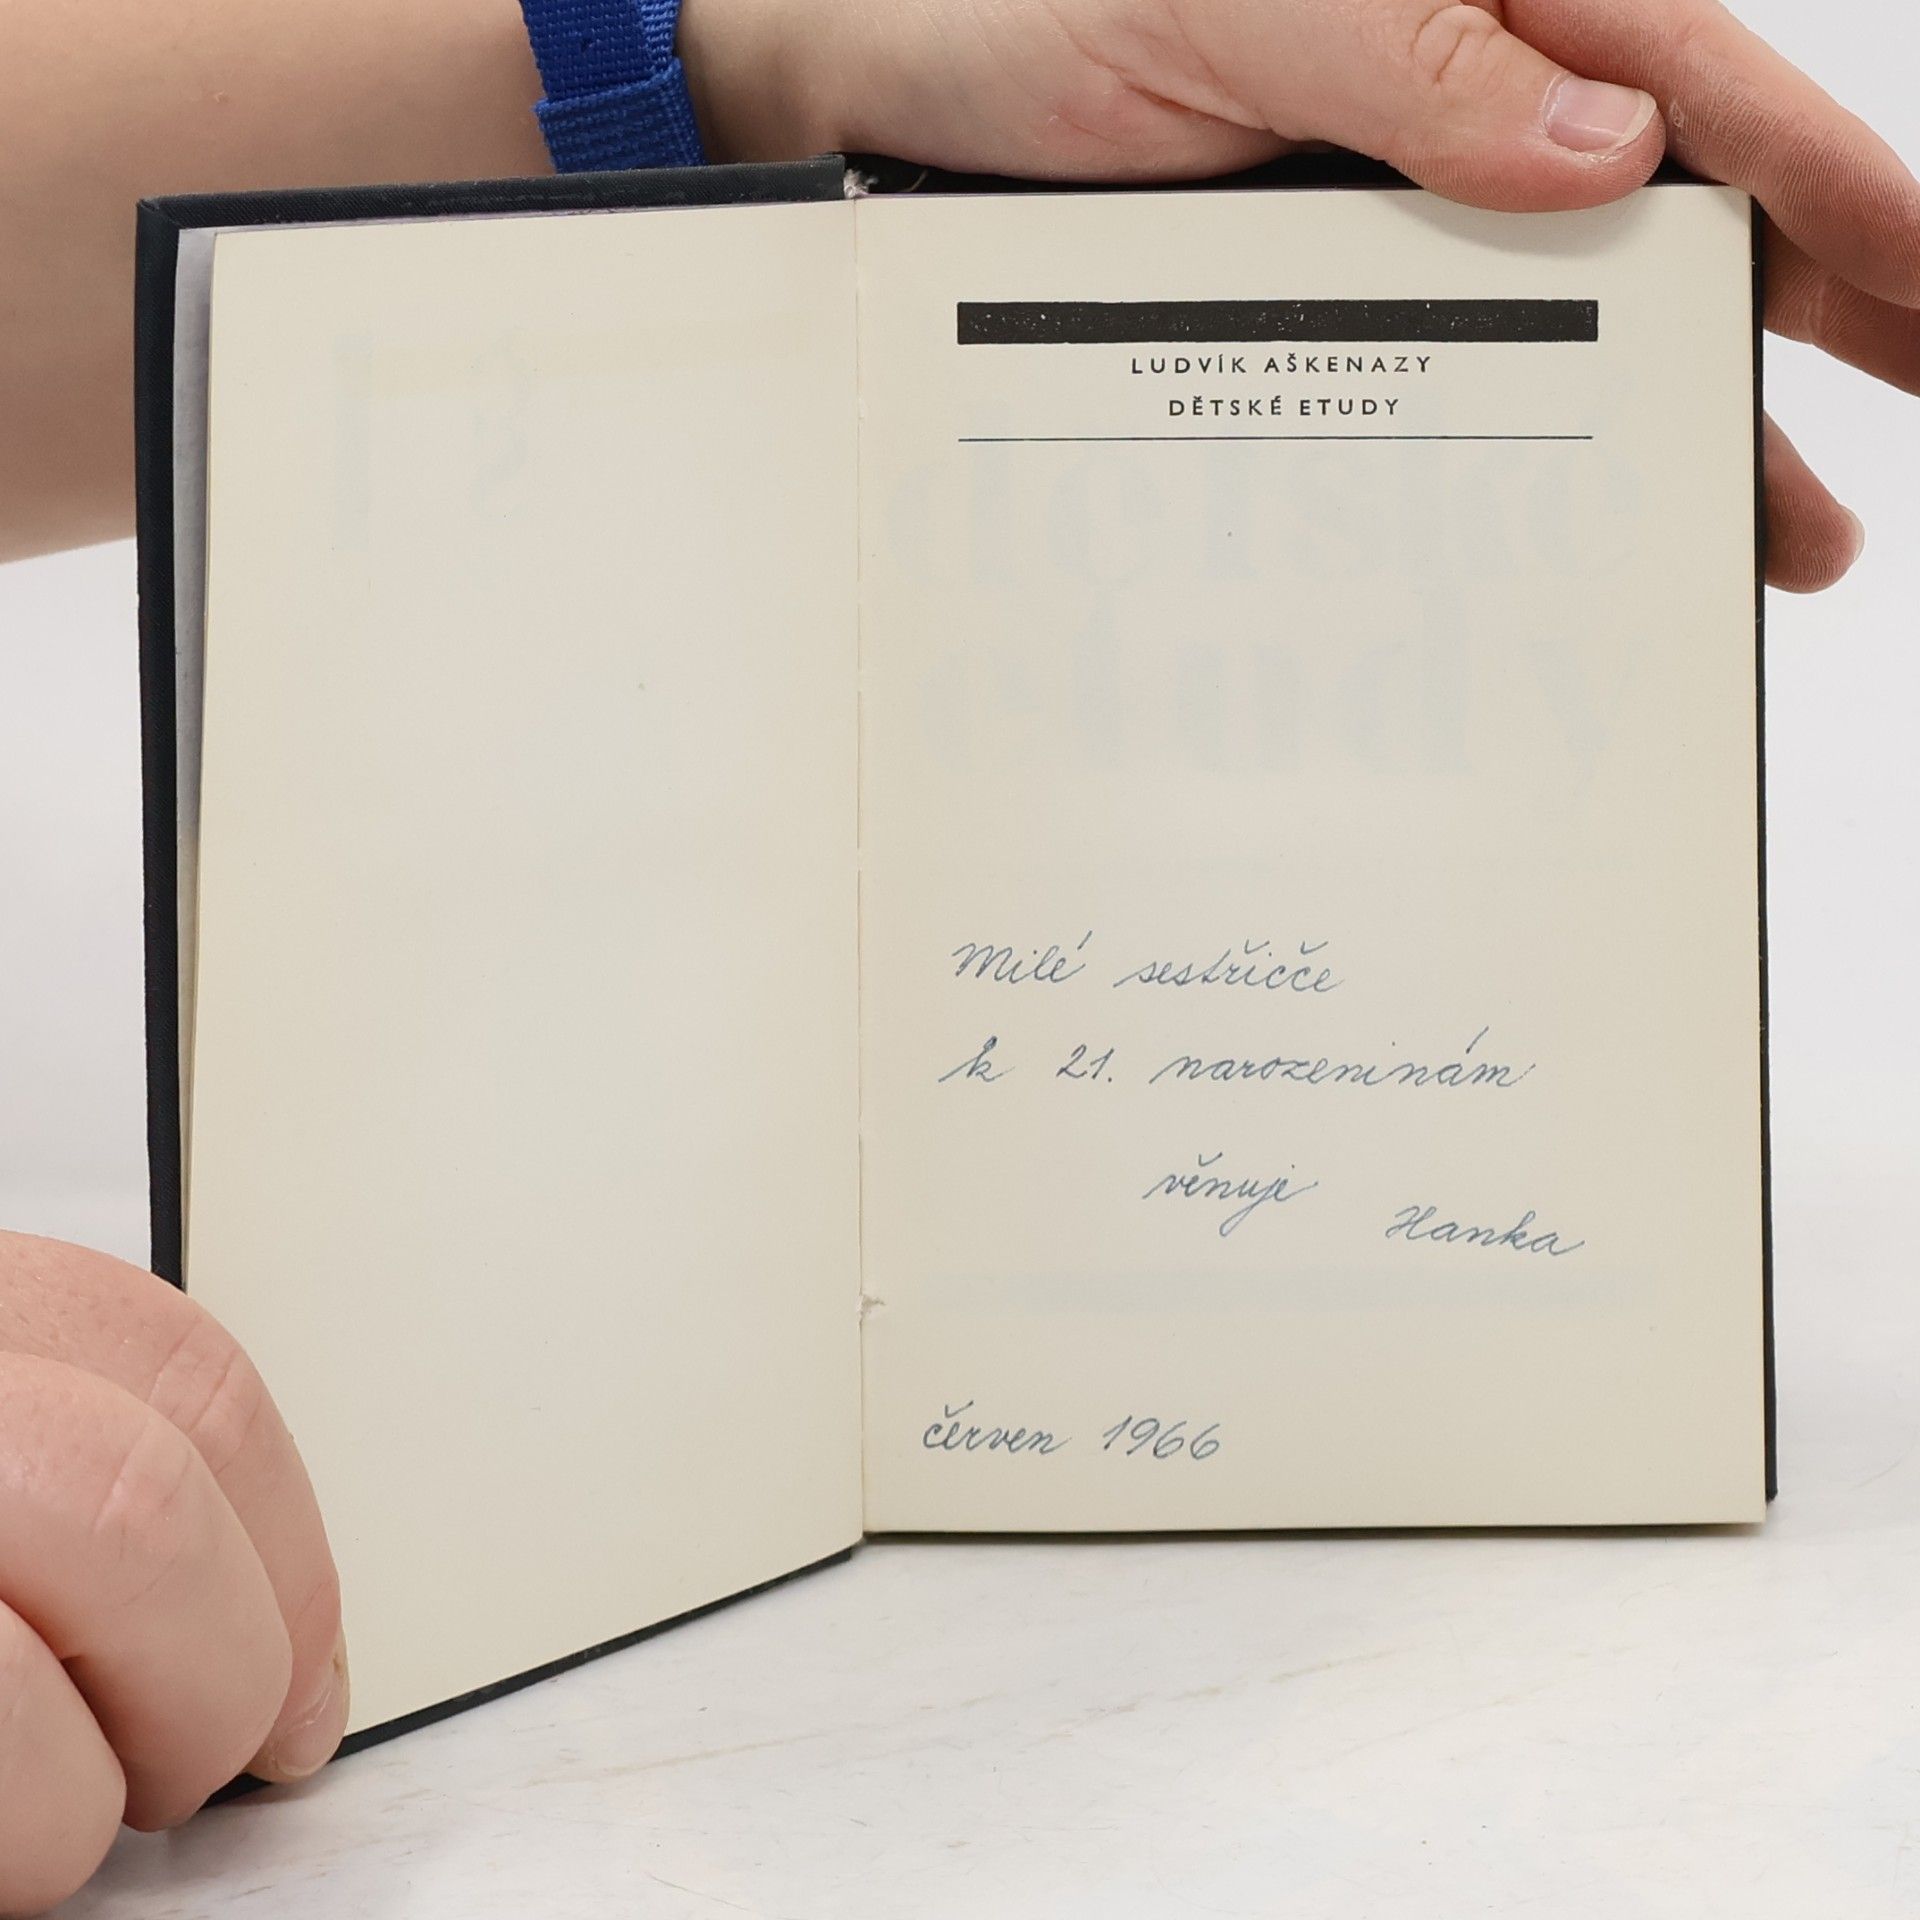 LUDVÍK AŠKENAZY
DĚTSKÉ ETUDY
Milé sestřičče
k 21. narozeninám
věnuje
Hanka
červen 1966